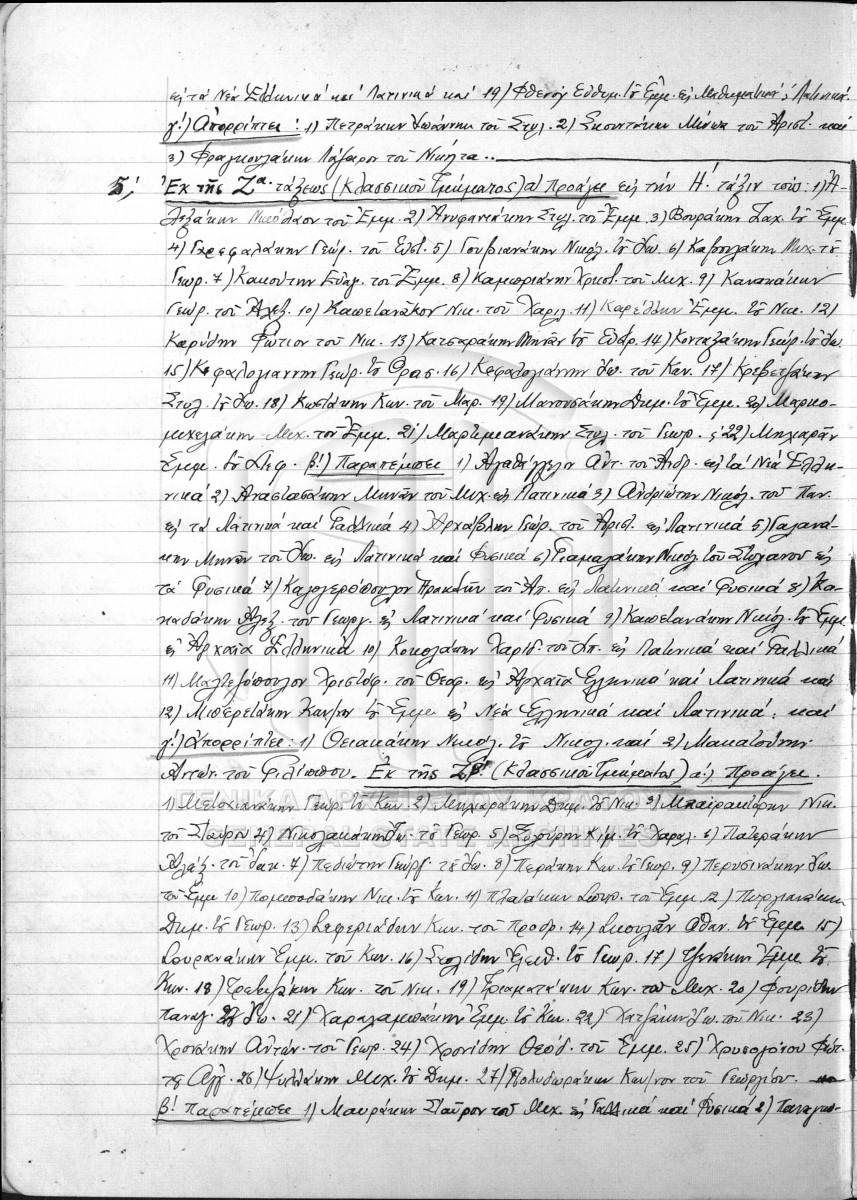 εἰς τὰ Νέα Ἑλληνικά καί Λατινικά καί 19) Φθενόγ Εὐθυμ. τοῦ Ἐμμ. εἰς Μαθηματικά, Λατινικά.
γ!) Ἀπορρίπτει: 1) Πετράκην Ἰωάννην τοῦ Στυλ. 2) Σκουντάκην Μίνωα τοῦ Ἀριστ. καί
3) Φραγκουλάκην Λάζαρον τοῦ Νικήτα..
5, Ἐκ τῆς Ζα. τάξεως (Κλασσικοῦ Τμήματος) α) Προάγει εἰς τήν Η΄. τάξιν τούς: 1) Ἀ-
λεξάκην Νικόλαον τοῦ Ἐμμ. 2) Ἀνυφαντάκην Στυλ. τοῦ Ἐμμ. 3) Βουράκην Ζαχ. τοῦ Ἐμμ.
4) Γαρεφαλάκην Γεώρ. τοῦ Εὐστ. 5) Γουβιανάκην Νικόλ. τοῦ Ἰω. 6) Καβουλάκην Μιχ. τοῦ
Γεωρ. 7) Κακούτην Εὐάγ. τοῦ Ἐμμ. 8) Καμαριάνην Χριστ. τοῦ Μιχ. 9) Κανακάκην
Γεωρ. τοῦ Ἀλεξ. 10) Καπετανάκον Νικ. τοῦ Χαριλ. 11) Καρέλλην Ἐμμ. τοῦ Νικ. 12)
Καρύδην Φώτιον τοῦ Νικ. 13) Κατσαράκην Μηνᾶν τοῦ 14) Κονταξάκην Γεώρ. τοῦ Ἰω.
15) Κεφαλογιάννην Γεωρ. τοῦ Θρασ. 16) Κεφαλογιάννην Ἰω. τοῦ Κων. 17) Κριβετζάκην
Στυλ. τοῦ Ἰω. 18) Κωστάκην Κων. τοῦ Μαρ. 19) Μανουσάκην Δημ. τοῦ Ἐμμ. 20) Μαρκο-
μιχελάκην Μιχ. τοῦ Ἐμμ. 21) Μαρτιμιανάκην Στυλ. τοῦ Γεωρ. 22) Μηλιαρᾶν
Ἐμμ. τοῦ Στεφ. β!) Παραπέμπει 1) Ἀγαθάγγελον Ἀντ. τοῦ Ἀνδρ. εἰς τά Νέα Ἑλλη-
νικά 2) Ἀναστασάκην Μηνᾶν τοῦ Μιχ. εἰς Λατινικά 3) Ἀνδριώτην Νικόλ. τοῦ Παν.
εἰς τά Λατινικά καί Γαλλικά 4) Ἀρχαβλῆν Γεώρ. τοῦ Ἀριστ. εἰς Λατινικά 5) Γαλανά-
κην Μηνᾶν τοῦ Ἰω. εἰς Λατινικά καί Φυσικά 6) Γιαμαλάκην Νικόλ. τοῦ Στυλιανοῦ εἰς
τά Φυσικά 7) Καλογερόπουλον τοῦ Ἀπ. εἰς Λατινικά καί Φυσικά 8) Κα-
καδάκην Ἀλεξ. τοῦ Γεωργ. εἰς Λατινικά καί Φυσικά 9) Καπετανάκην Νικόλ. τοῦ Ἐμμ.
εἰς Ἀρχαῖα Ἑλληνικά 10) Κοκολάκην Χαρίδ. τοῦ Σπ. εἰς Λατινικά καί Γαλλικά
11) Μαλτεζόπουλον Χριστόφ. τοῦ Θεοφ. εἰς Ἀρχαῖα Ἑλληνικά καί Λατινικά καί
12) Μπερετάκην Κων/νον τοῦ Ἐμμ. εἰς Νέα Ἑλληνικά καί Λατινικά. καί
γ!) ἀπορρίπτει: 1) Θειακάκην Νικόλ. τοῦ Νικολ. καί 2) Μακατούνην
Ἀντών. τοῦ Φιλίππου. Ἐκ τῆς Ζβ! (Κλασσικοῦ Τμήματος) α!) Προάγει.
1) Μετοχιανάκην Γεωρ. τοῦ Κων. 2) Μηλιαράκην Δημ. τοῦ Νικ. 3) Μπαϊρακτάρην Νικ.
τοῦ Σταύρου 4) Νικολακάκην Ἰω. τοῦ Γεωρ. 5) Ξυλούρην Κίμ. τοῦ Χαραλ. 6) Πατεράκην
Ἀλέξ. τοῦ Ἰακ. 7) Πεδιώτην Γεώργ. τοῦ Ἰω. 8) Περάκην Κων. τοῦ Γεωρ. 9) Περυσινάκην Ἰω.
τοῦ Ἐμμ. 10) Νικ. τοῦ Κων. 11) Πλατάκην Σπυρ. τοῦ Ἐμμ. 12) Πυργιανάκην
Δημ. τοῦ Γεωρ. 13) Σεφεριάδην Κων. τοῦ Προδρ. 14) Σκουλᾶν Ἀθαν. τοῦ Ἐμμ. 15)
Σουρανάκην Ἐμμ. τοῦ Κων. 16) Στολίδην Ἐλευθ. τοῦ Γεωρ. 17) Τζενάκην Ἐμμ. τοῦ
Κων. 18) Τραβεζάκην Κων. τοῦ Νικ. 19) Τριαματάκην Κων. τοῦ Μιχ. 20) Φουρίδην
Παναγ. τοῦ Ἰω. 21) Χαραλαμπάκην Ἐμμ. τοῦ Κων. 22) Χατζάκην Ἰω. τοῦ Νικ. 23)
Χρονάκην Ἀντών. τοῦ Γεωρ. 24) Χρονίδην Θεόδ. τοῦ Ἐμμ. 25) Χρυσογόνου Φωτ.
τοῦ Ἀλέ. 26) Ψυλλάκην Μιχ. τοῦ Δημ. 27) Πολυδωράκην Κων/νον τοῦ Γεωργίου.
β! Παραπέμπει 1) Μαυράκην Σταῦρον τοῦ Μιχ. εἰς Γαλλικά καί Φυσικά 2) Παναγιω-
ΓΕΝΙΚΑ ΑΡΧΕΙΑ ΤΟΥ ΚΡΑΤΟΥΣ
GENERAL STATE ARCHIVES